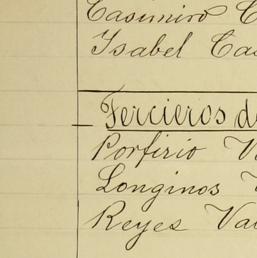 Casimiro C
Ysabel Ca
Fercieros d
Porfirio V
Longinos
Reyes Va